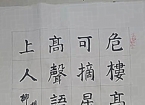 危樓高
可摘星
高聲語
上人